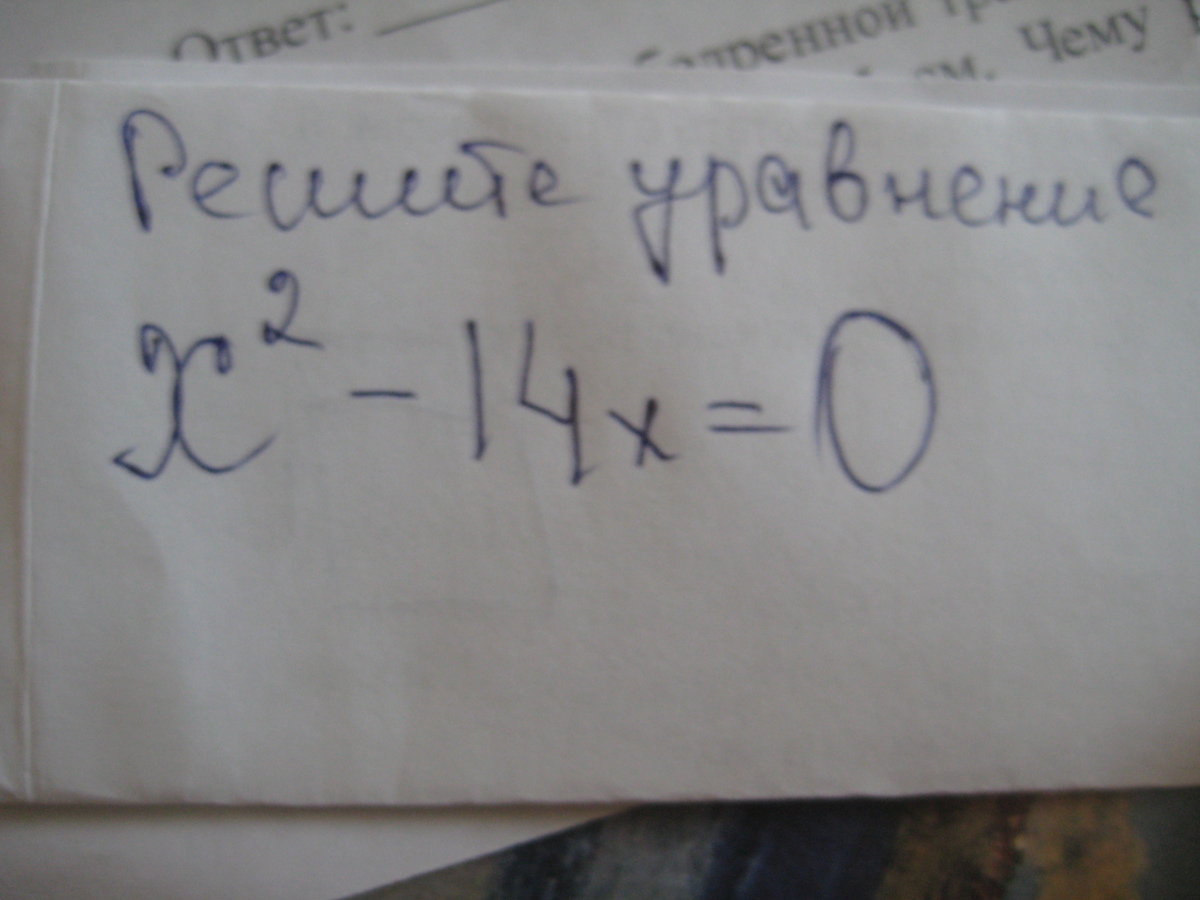 Ответ:
тренной
см. Чему
Решите уравнение
x² - 14x = 0